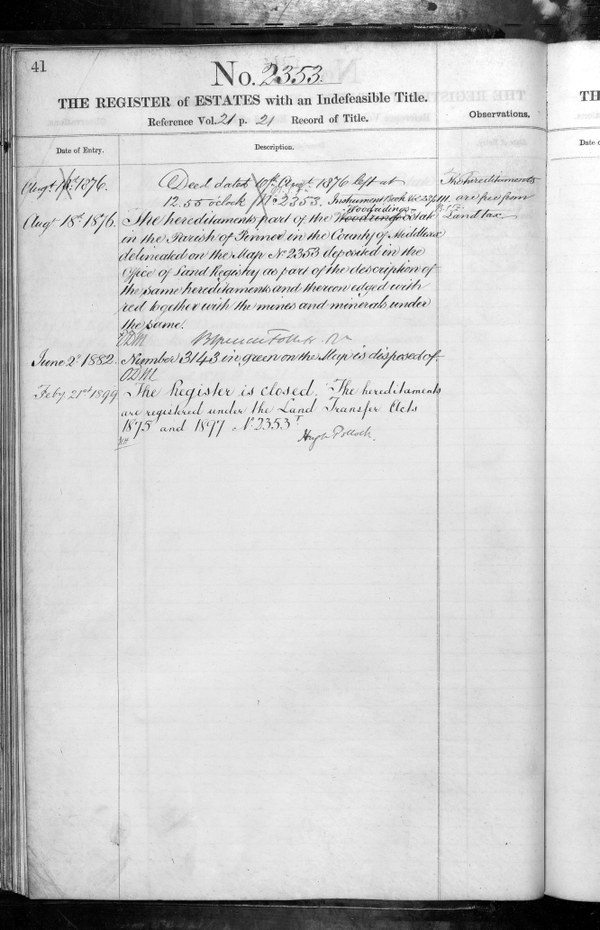 41
No. 2353
THE REGISTER of ESTATES with an Indefeasible Title.
Reference Vol. 21 p. 21 Record of Title.
Observations.
Date of Entry.
Description.
Augt. 1876.
Deed dated 10th Augt. 1876 left at
12.55 o'clock No 2353. Instrument Book
The hereditaments
are free from
Land tax
Augt 18th 1876.
The hereditaments part of the Woodridings Estate
in the Parish of Pinner in the County of Middlesex
delineated on the Map No 2353 deposited in the
Office of Land Registry as part of the description of
the same hereditaments and thereon edged with
red together with the mines and minerals under
the same.
June 2d 1882.
Number 3143 in green on the Map is disposed of
ODM
Feby 21st 1899
The Register is closed. The hereditaments
are registered under the Land Transfer Acts
1875 and 1897 No 2353T
Hugh Pollock.
TH
Date o